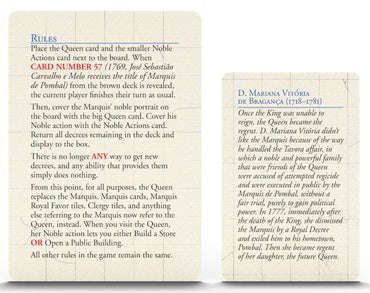 RULES
Place the Queen card and the smaller Noble
Actions card next to the board. When
CARD NUMBER 57 (1769, José Sebastião
Carvalho e Melo receives the title of Marquis
de Pombal) from the brown deck is revealed,
the current player finishes their turn as usual.
Then, cover the Marquis' noble portrait on
the board with the big Queen card. Cover his
Noble action with the Noble Actions card.
Return all decree remaining in the deck and
display to the box.
There is no longer ANY way to get new
decrees, and any ability that provides them
simply does nothing.
From this point, for all purposes, the Queen
replaces the Marquis. Marquis cards, Marquis
Royal Favor tiles, Clergy tiles, and anything
else referring to the Marquis now refer to the
Queen, instead. When you visit the Queen,
her Noble action lets you either Build a Store
OR Open a Public Building.
All other rules in the game remain the same.
D. MARIANA VITÓRIA
DE BRAGANÇA (1718–1781)
Once the King was unable to
reign, the Queen became the
regent. D. Mariana Vitória didn't
like the Marquis because of the way
he handled the Tavora affair, in
which a noble and powerful family
that were friends of the Queen
were accused of attempted regicide
and were executed in public by the
Marquis de Pombal, without a
fair trial, purely to gain political
power. In 1777, immediately after
the death of the King, she dismissed
the Marquis by a Royal Decree
and exiled him to his hometown,
Pombal. Then she became regent
of her daughter, the future Queen.